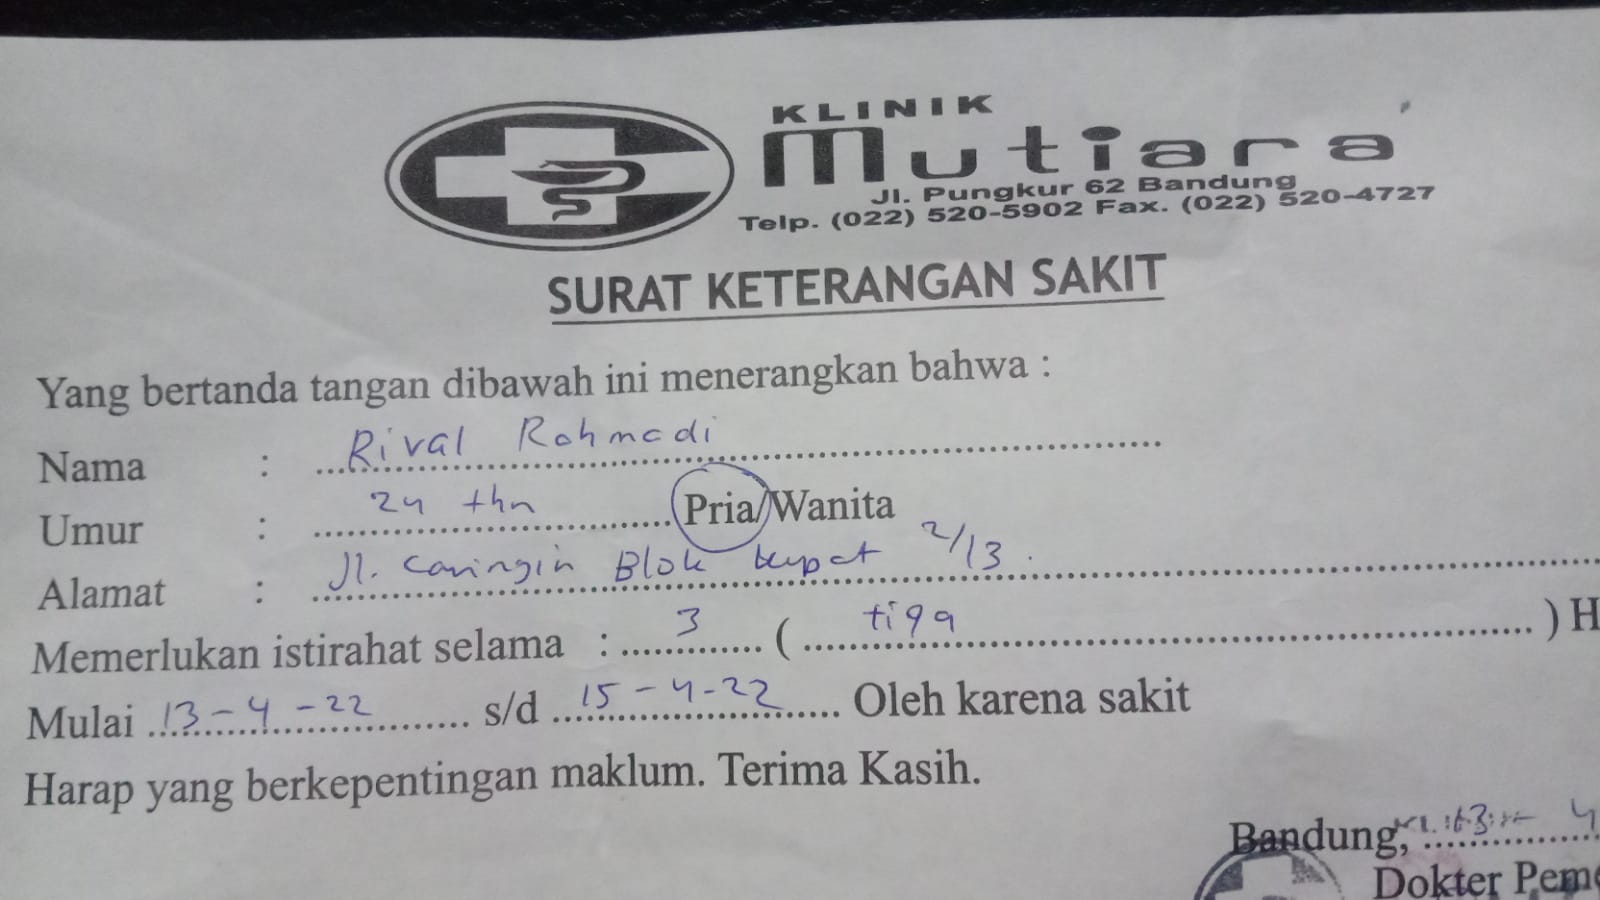 KLINIK
Mutiara
Jl. Pungkur 62 Bandung
Telp. (022) 520-5902 Fax. (022) 520-4727
SURAT KETERANGAN SAKIT
Yang bertanda tangan dibawah ini menerangkan bahwa :
Nama : Rival Rohmadi
Umur : 24 thn Pria/Wanita
Alamat : Jl. Caringin Blok kupat 2/13.
Memerlukan istirahat selama : 3 ( tiga ) H
Mulai 13-4-22 s/d 15-4-22 Oleh karena sakit
Harap yang berkepentingan maklum. Terima Kasih.
Bandung,
Dokter Peme